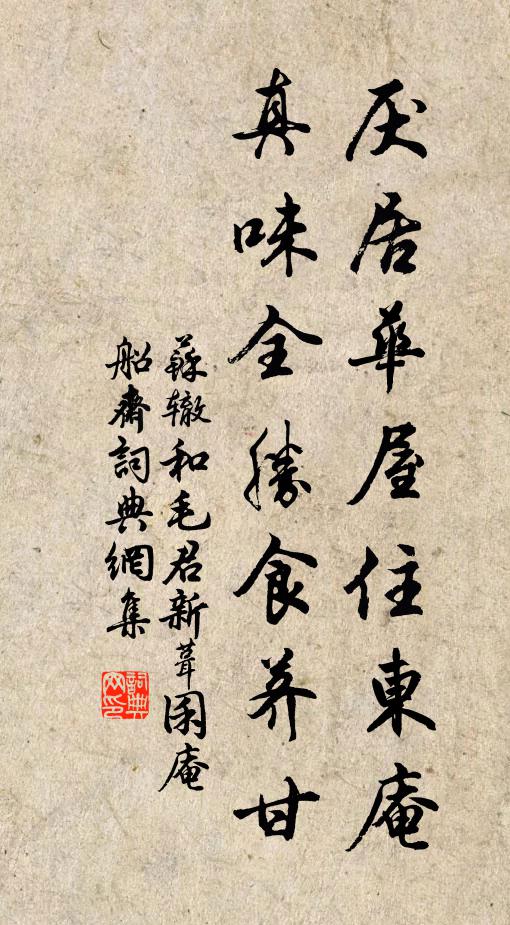 厌居華屋住東庵
真味全勝食荠甘
蘇辙和毛君新葺囷庵
船齋詞典網集
詞典
网印